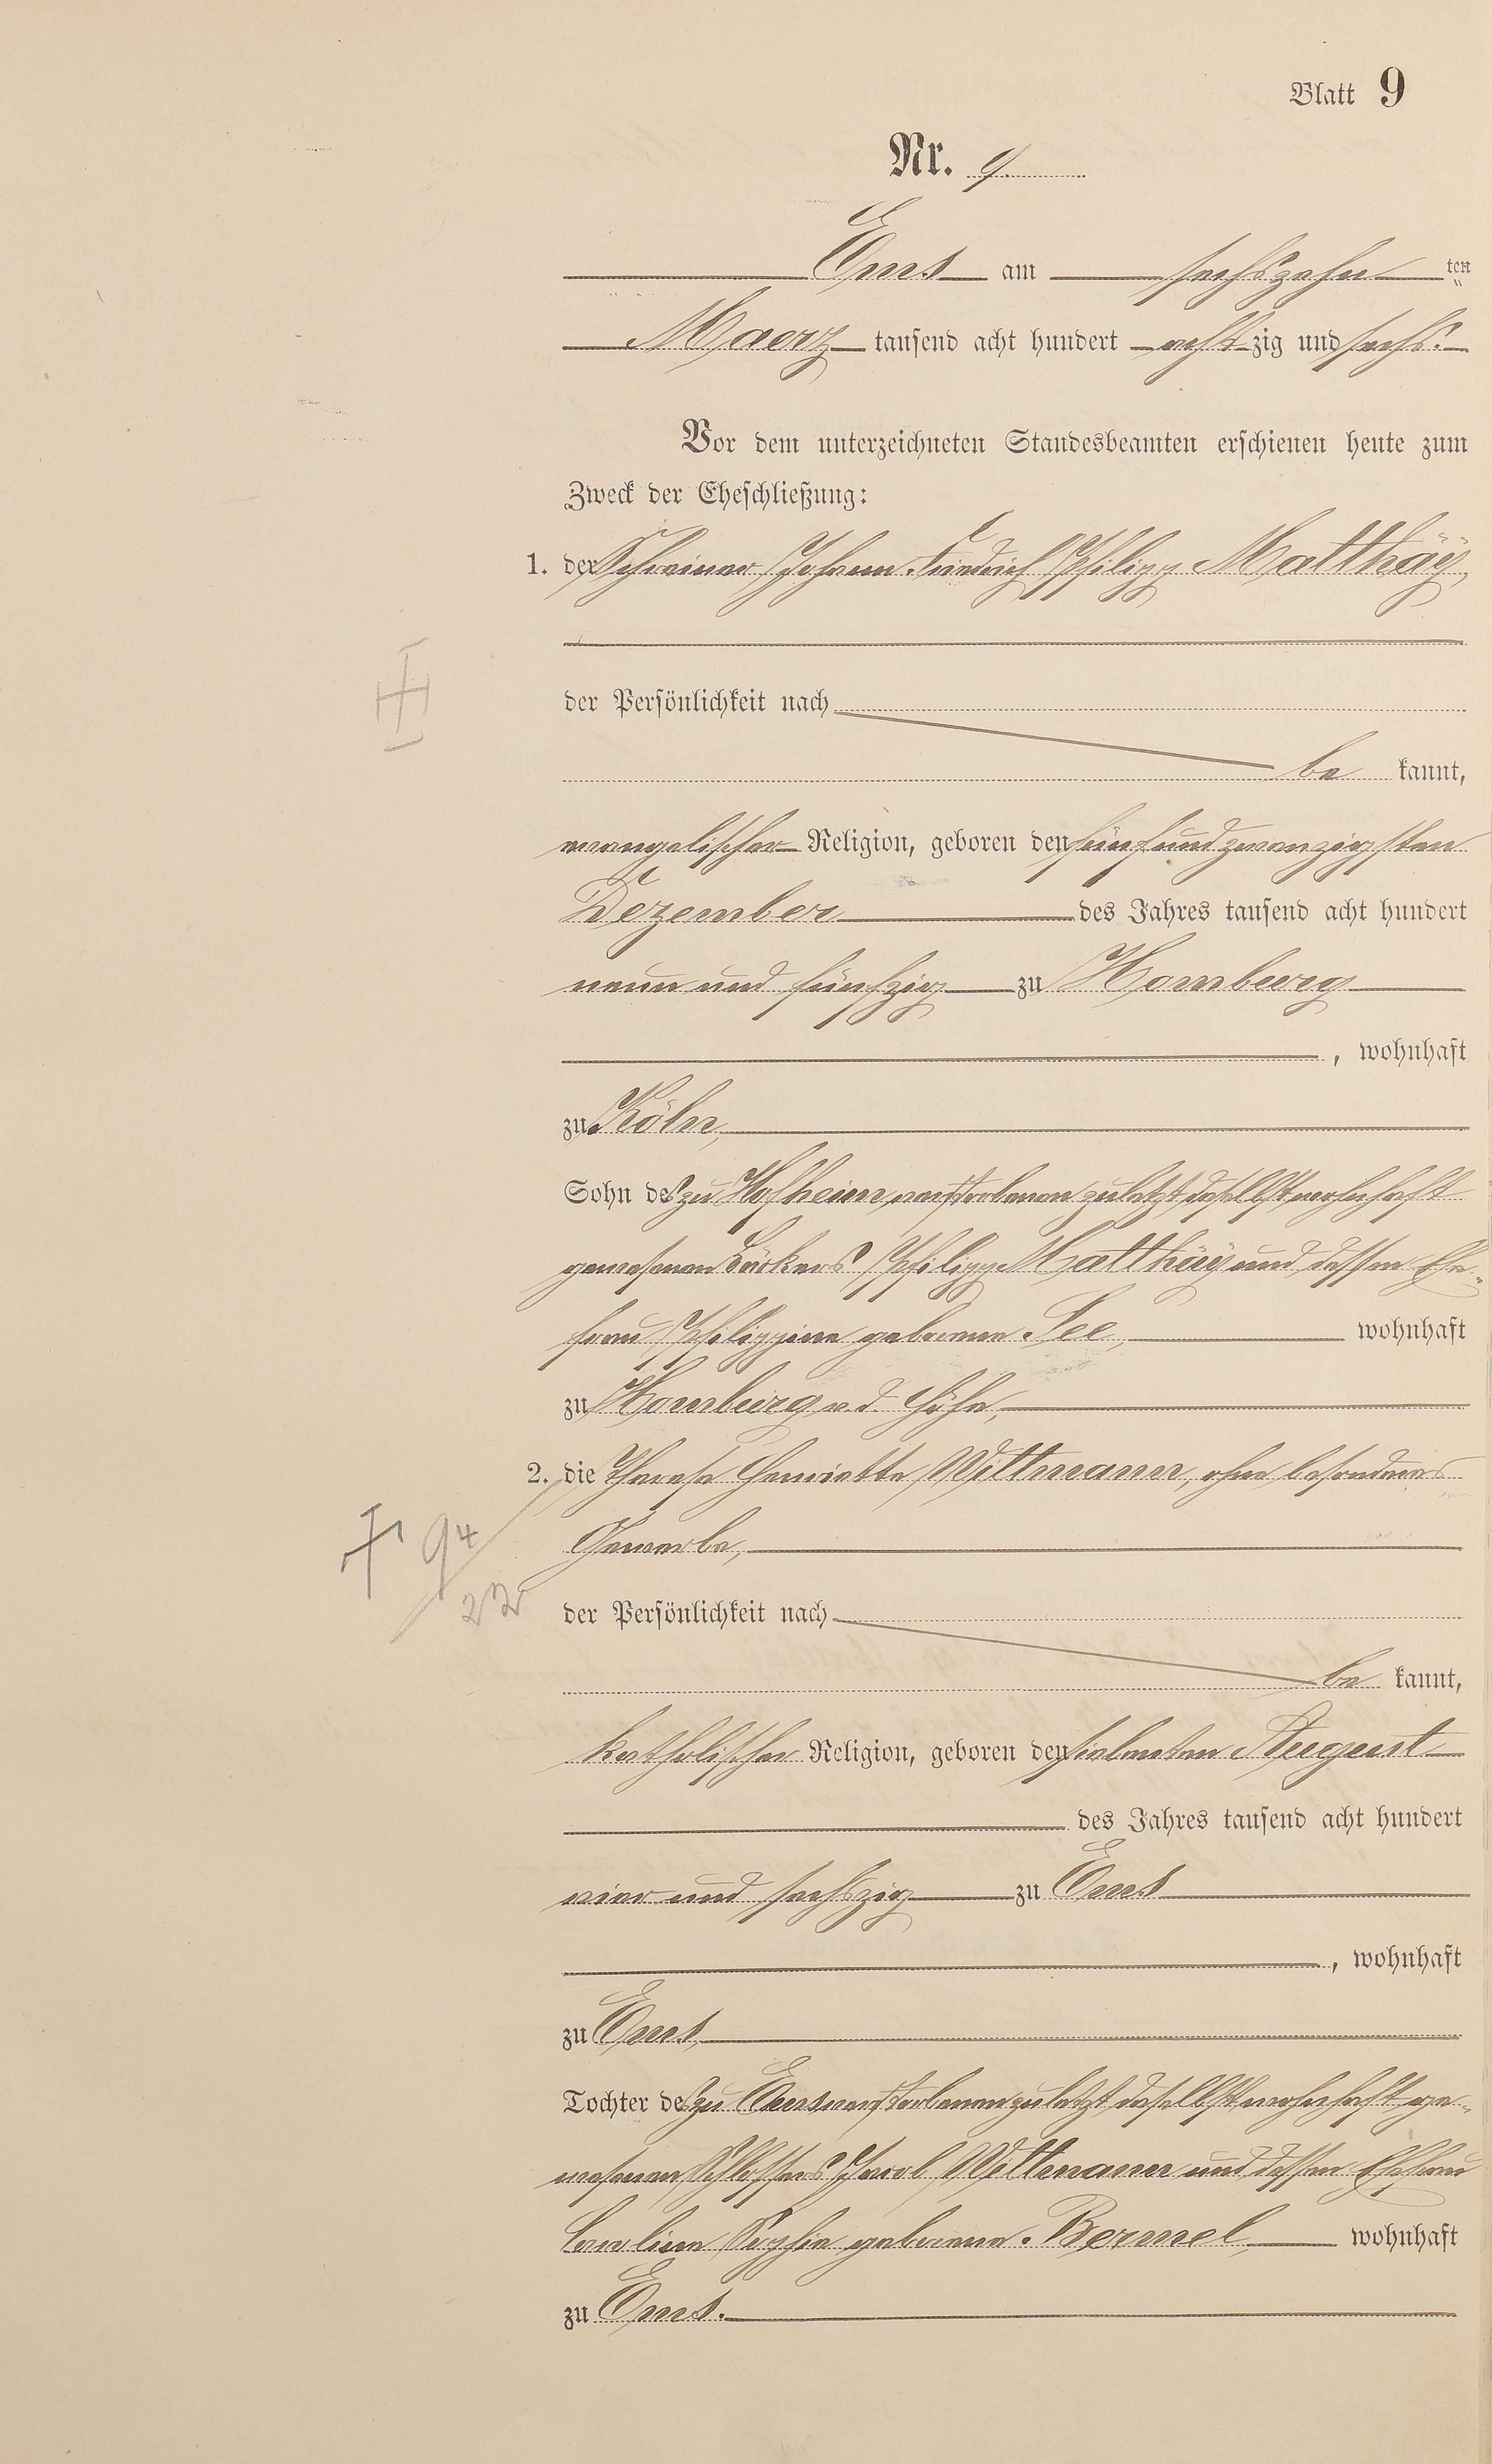 Blatt 9
Nr. 9.
Ems am sechszehn ten
Maerz tausend acht hundert achtzig und sechs.
Vor dem unterzeichneten Standesbeamten erschienen heute zum
Zweck der Eheschließung:
1. der Schreiner Johann Friedrich Philipp Matthäy,
der Persönlichkeit nach
be kannt,
evangelischer Religion, geboren den fünf und zwanzigsten
Dezember des Jahres tausend acht hundert
neun und fünfzig zu Homburg
, wohnhaft
zu Köln,
Sohn des zu Hofheim verstorbenen zuletzt daselbst wohnhaft
gewesenen Bäckers Philipp Matthäy und dessen Ehe-
frau Philippine geborene See, wohnhaft
zu Homburg v. d. Höhe,
2. die Therese Henriette Wittmann, ohne besonderes
Gewerbe,
94
22
der Persönlichkeit nach
be kannt,
katholischer Religion, geboren den siebenten August
des Jahres tausend acht hundert
vier und sechszig zu Ems
, wohnhaft
zu Ems,
Tochter des zu Ems verstorbenen zuletzt daselbst wohnhaft ge-
wesenen Schlossers Jacob Wittmann und dessen Ehefrau
Caroline Sophie geborene Bermel, wohnhaft
zu Ems.